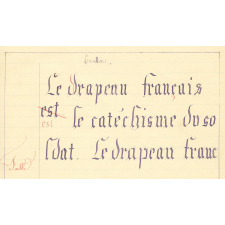 Le drapeau français
est le catéchisme du so
est
ldat. Le drapeau franc